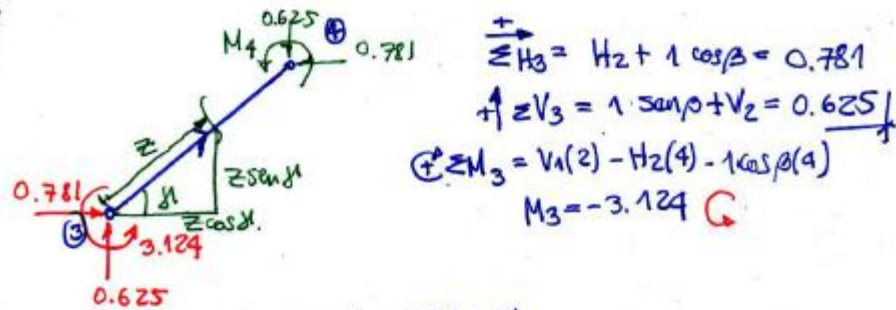 0.625 ④
M4 0.781
Z
Z sen γ
γ
Z cos γ.
0.781
③ 3.124
0.625
+ ΣH3 = H2 + 1 cosβ = 0.781
+ ΣV3 = 1 senβ + V2 = 0.625
+ ΣM3 = V1(2) - H2(4) - 1cosβ(4)
M3 = -3.124